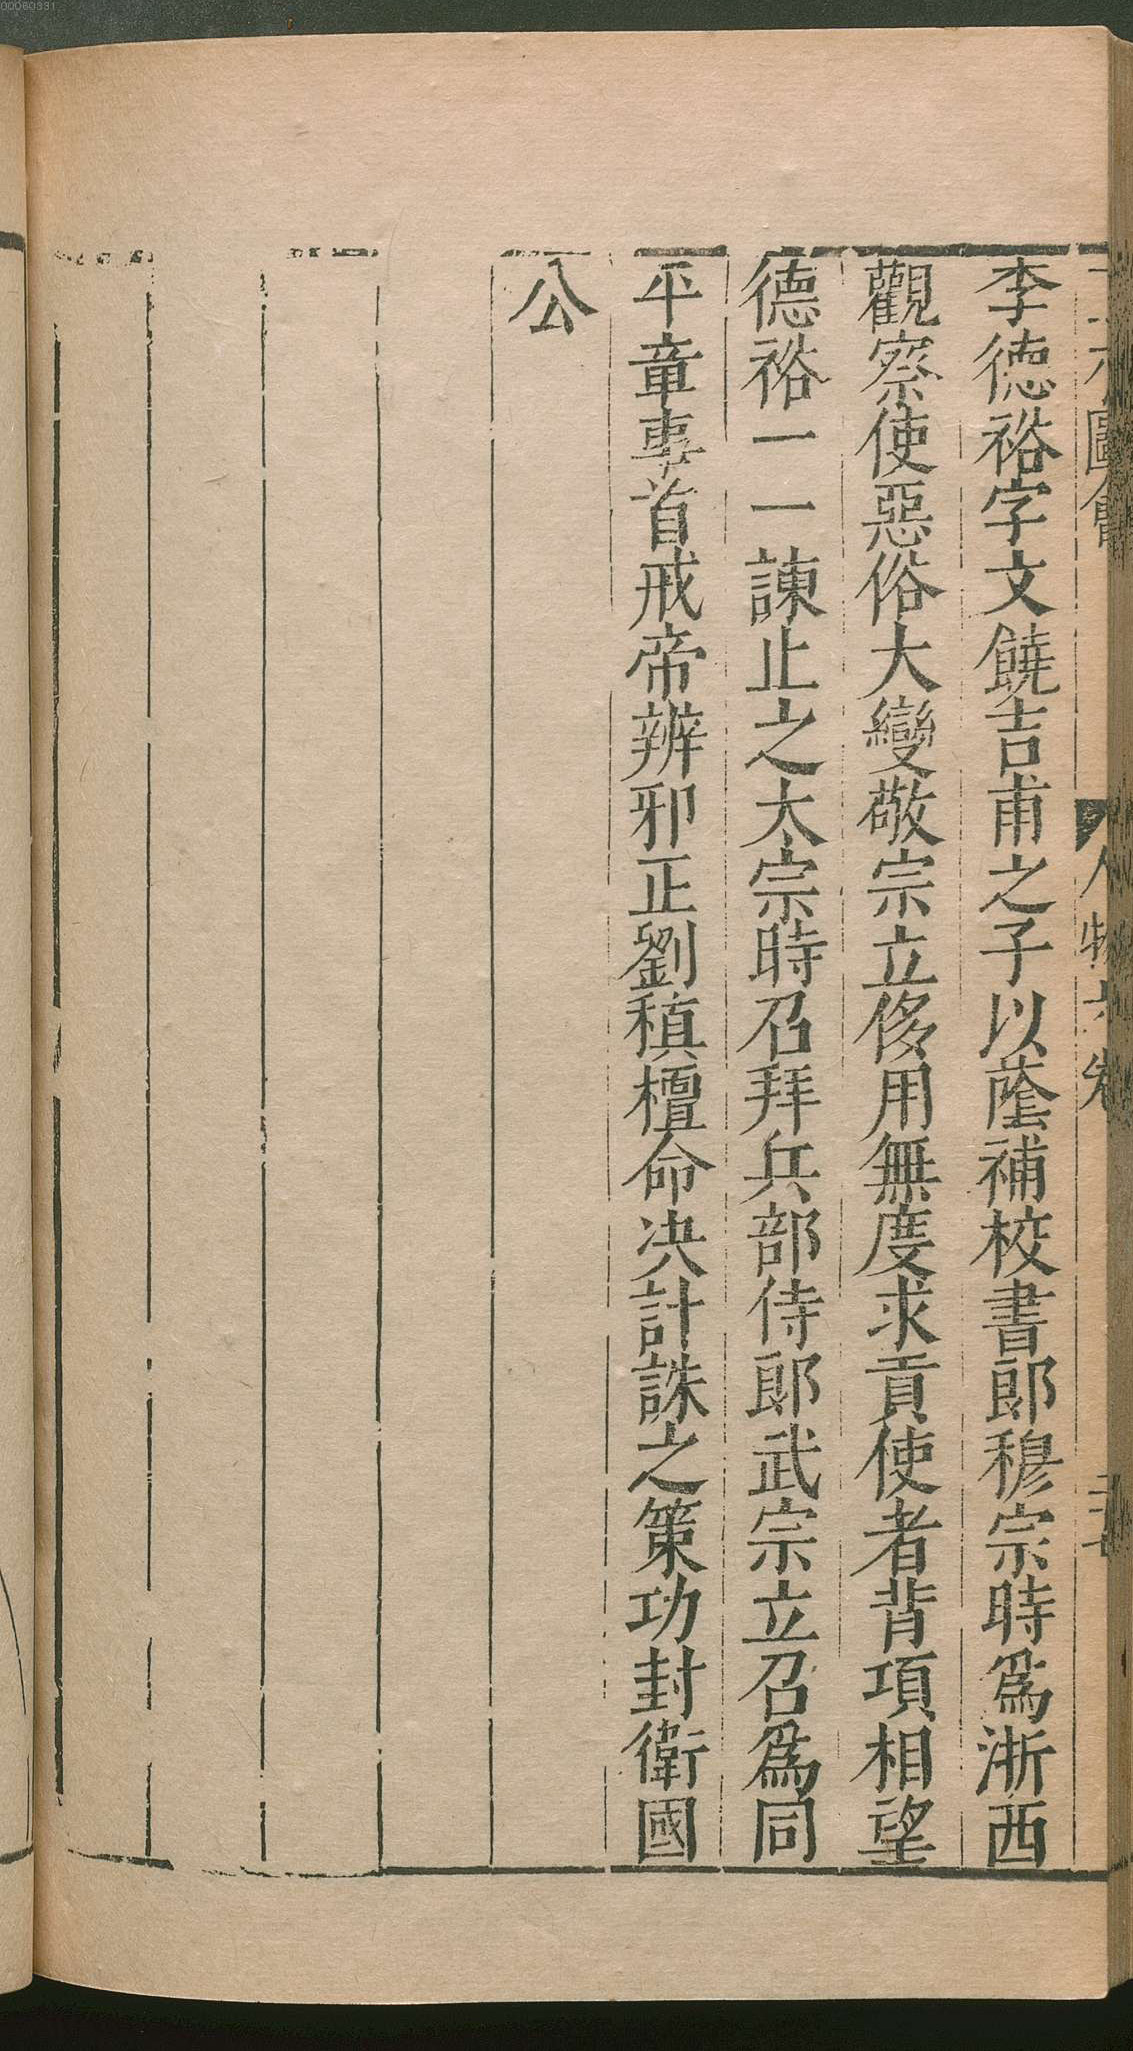 00060331
圖會 人物 卷
李德裕字文饒吉甫之子以蔭補校書郎穆宗時爲浙西
觀察使惡俗大變敬宗立侈用無度求貢使者背項相望
德裕一一諫止之太宗時召拜兵部侍郎武宗立召爲同
平章事首戒帝辨邪正劉稹檀命决計誅之策功封衛國
公